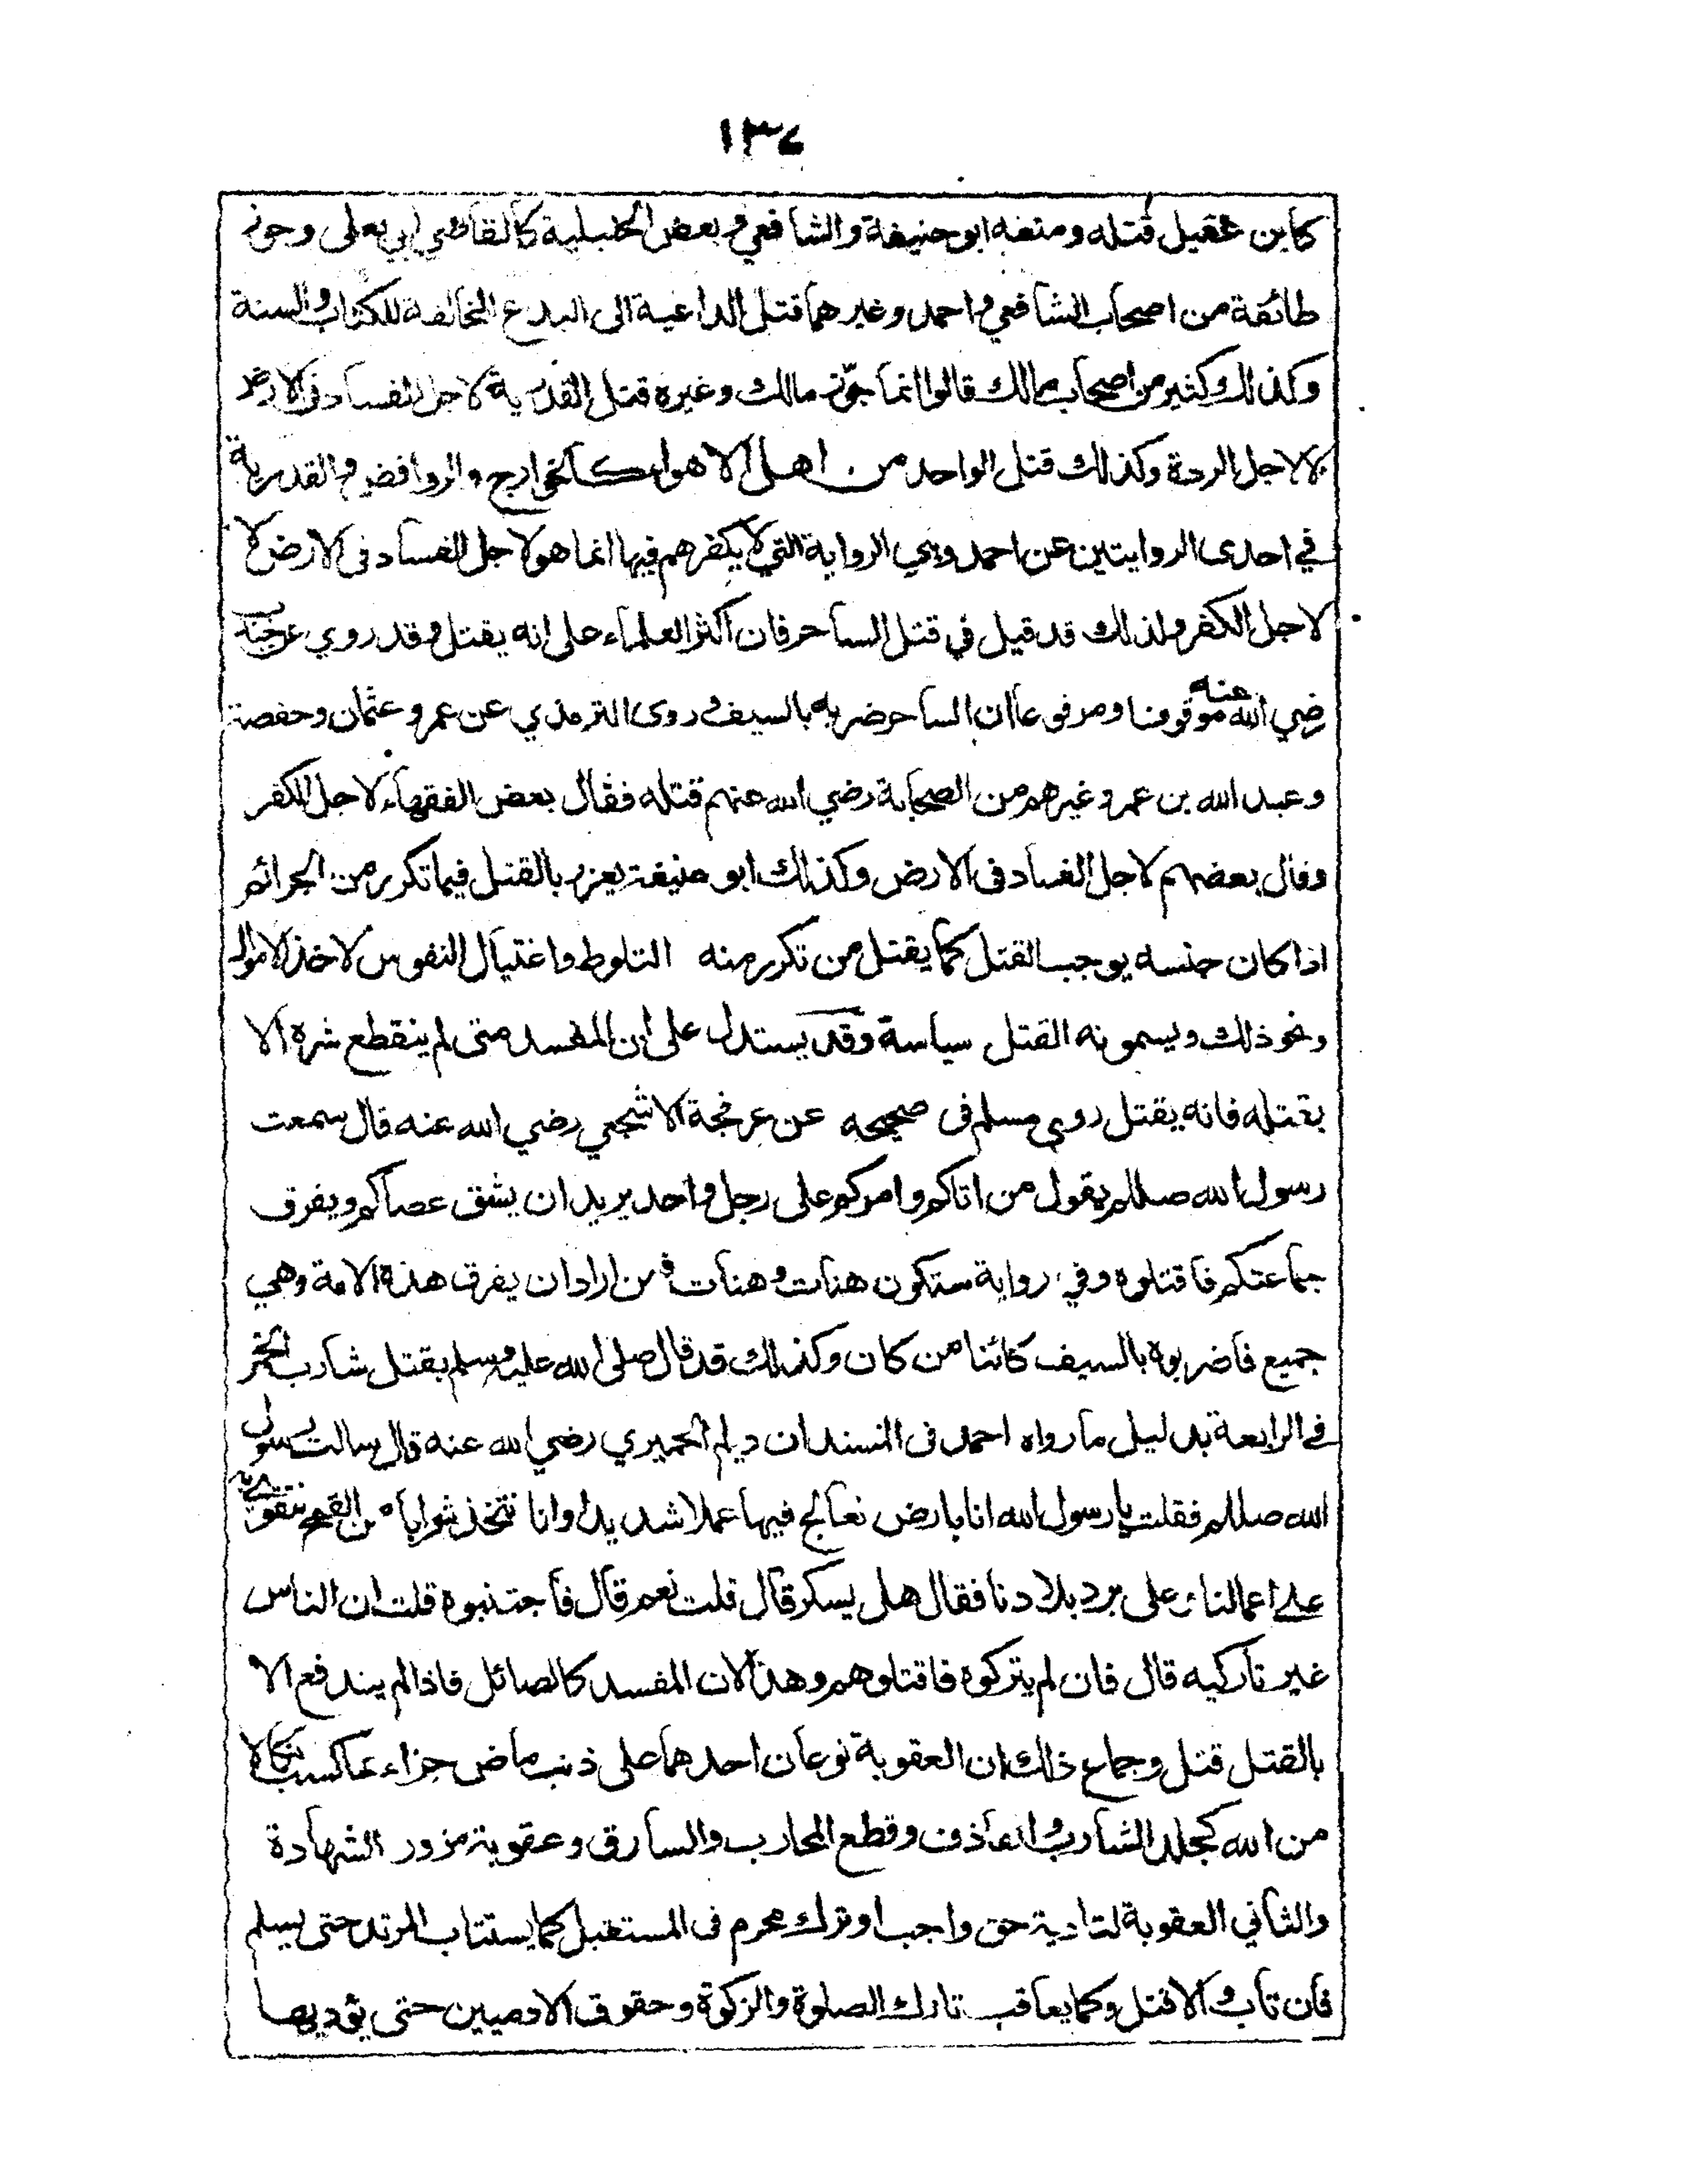 ١٣٤
كابن عقيل قتله ومنعه ابو حنيفة والشافعي وبعض الحنبلية كالقاضي ابي يعلى وجوز
طائفة من اصحاب الشافعي واحمد وغيرهما قتل الداعية الى البدع المخالفة للكتاب والسنة
وكذلك كثير من اصحاب مالك قالوا انما جوّز مالك وغيره قتل القدرية لاجل الفساد فى الارض
لا لاجل الردة وكذلك قتل الواحد من اهل الاهواء كالخوارج والروافض والقدرية
في احدى الروايتين عن احمد وهي الرواية التي لا يكفرهم فيها انما هو لاجل الفساد فى الارض لا
لاجل الكفر ولذلك قد قيل في قتل الساحر فان اكثر العلماء على انه يقتل وقد روي عن جندب
رضي الله عنه موقوفا ومرفوعا ان الساحر ضربه بالسيف وروى الترمذي عن عمر وعثمان وحفصة
وعبد الله بن عمر وغيرهم من الصحابة رضي الله عنهم قتله فقال بعض الفقهاء لاجل الكفر
وقال بعضهم لاجل الفساد فى الارض وكذلك ابو حنيفة يعزر بالقتل فيما تكرر من الجرائم
اذا كان جنسه يوجب القتل كما يقتل من تكرر منه التلوط واغتيال النفوس لاخذ الاموال
ونحو ذلك ويسمونه القتل سياسة وقد يستدل على ان المفسد متى لم ينقطع شره الا
بقتله فانه يقتل روى مسلم فى صحيحه عن عرفجة الاشجعي رضي الله عنه قال سمعت
رسول الله صللم يقول من اتاكم وامركم على رجل واحد يريد ان يشق عصاكم ويفرق
جماعتكم فاقتلوه وفي رواية ستكون هنات وهنات فمن اراد ان يفرق هذه الامة وهي
جميع فاضربوه بالسيف كائنا من كان وكذلك قد قال صلى الله عليه وسلم بقتل شارب الخمر
في الرابعة بدليل ما رواه احمد فى المسند ان ديلم الحميري رضي الله عنه قال سالت رسول
الله صللم فقلت يا رسول الله انا بارض نعالج فيها عملا شديدا وانا نتخذ شرابا من القمح نتقوى به
على اعمالنا وعلى برد بلادنا فقال هل يسكر قال قلت نعم قال فاجتنبوه قلت ان الناس
غير تاركيه قال فان لم يتركوه فاقتلوهم وهذا لان المفسد كالصائل فاذا لم يندفع الا
بالقتل قتل وجماع ذلك ان العقوبة نوعان احدهما على ذنب ماض جزاء بما كسب نكالا
من الله كجلد الشارب والقاذف وقطع المحارب والسارق وعقوبة مزور الشهادة
والثاني العقوبة لتادية حق واجب او ترك محرم فى المستقبل كما يستتاب المرتد حتى يسلم
فان تاب والا قتل وكما يعاقب تارك الصلوة والزكوة وحقوق الادميين حتى يؤديها